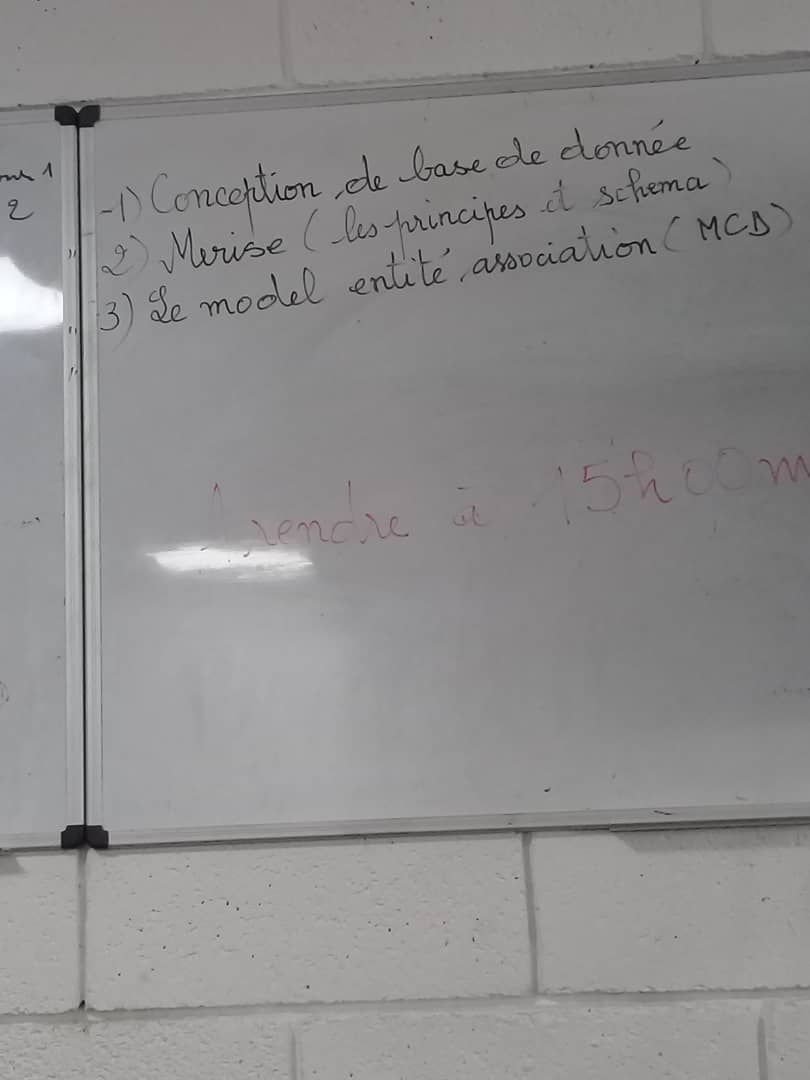 1
2
-1) Conception de base de donnée
2) Merise (les principes et schema)
3) Le model entité, association (MCD)
A rendre à 15h00m